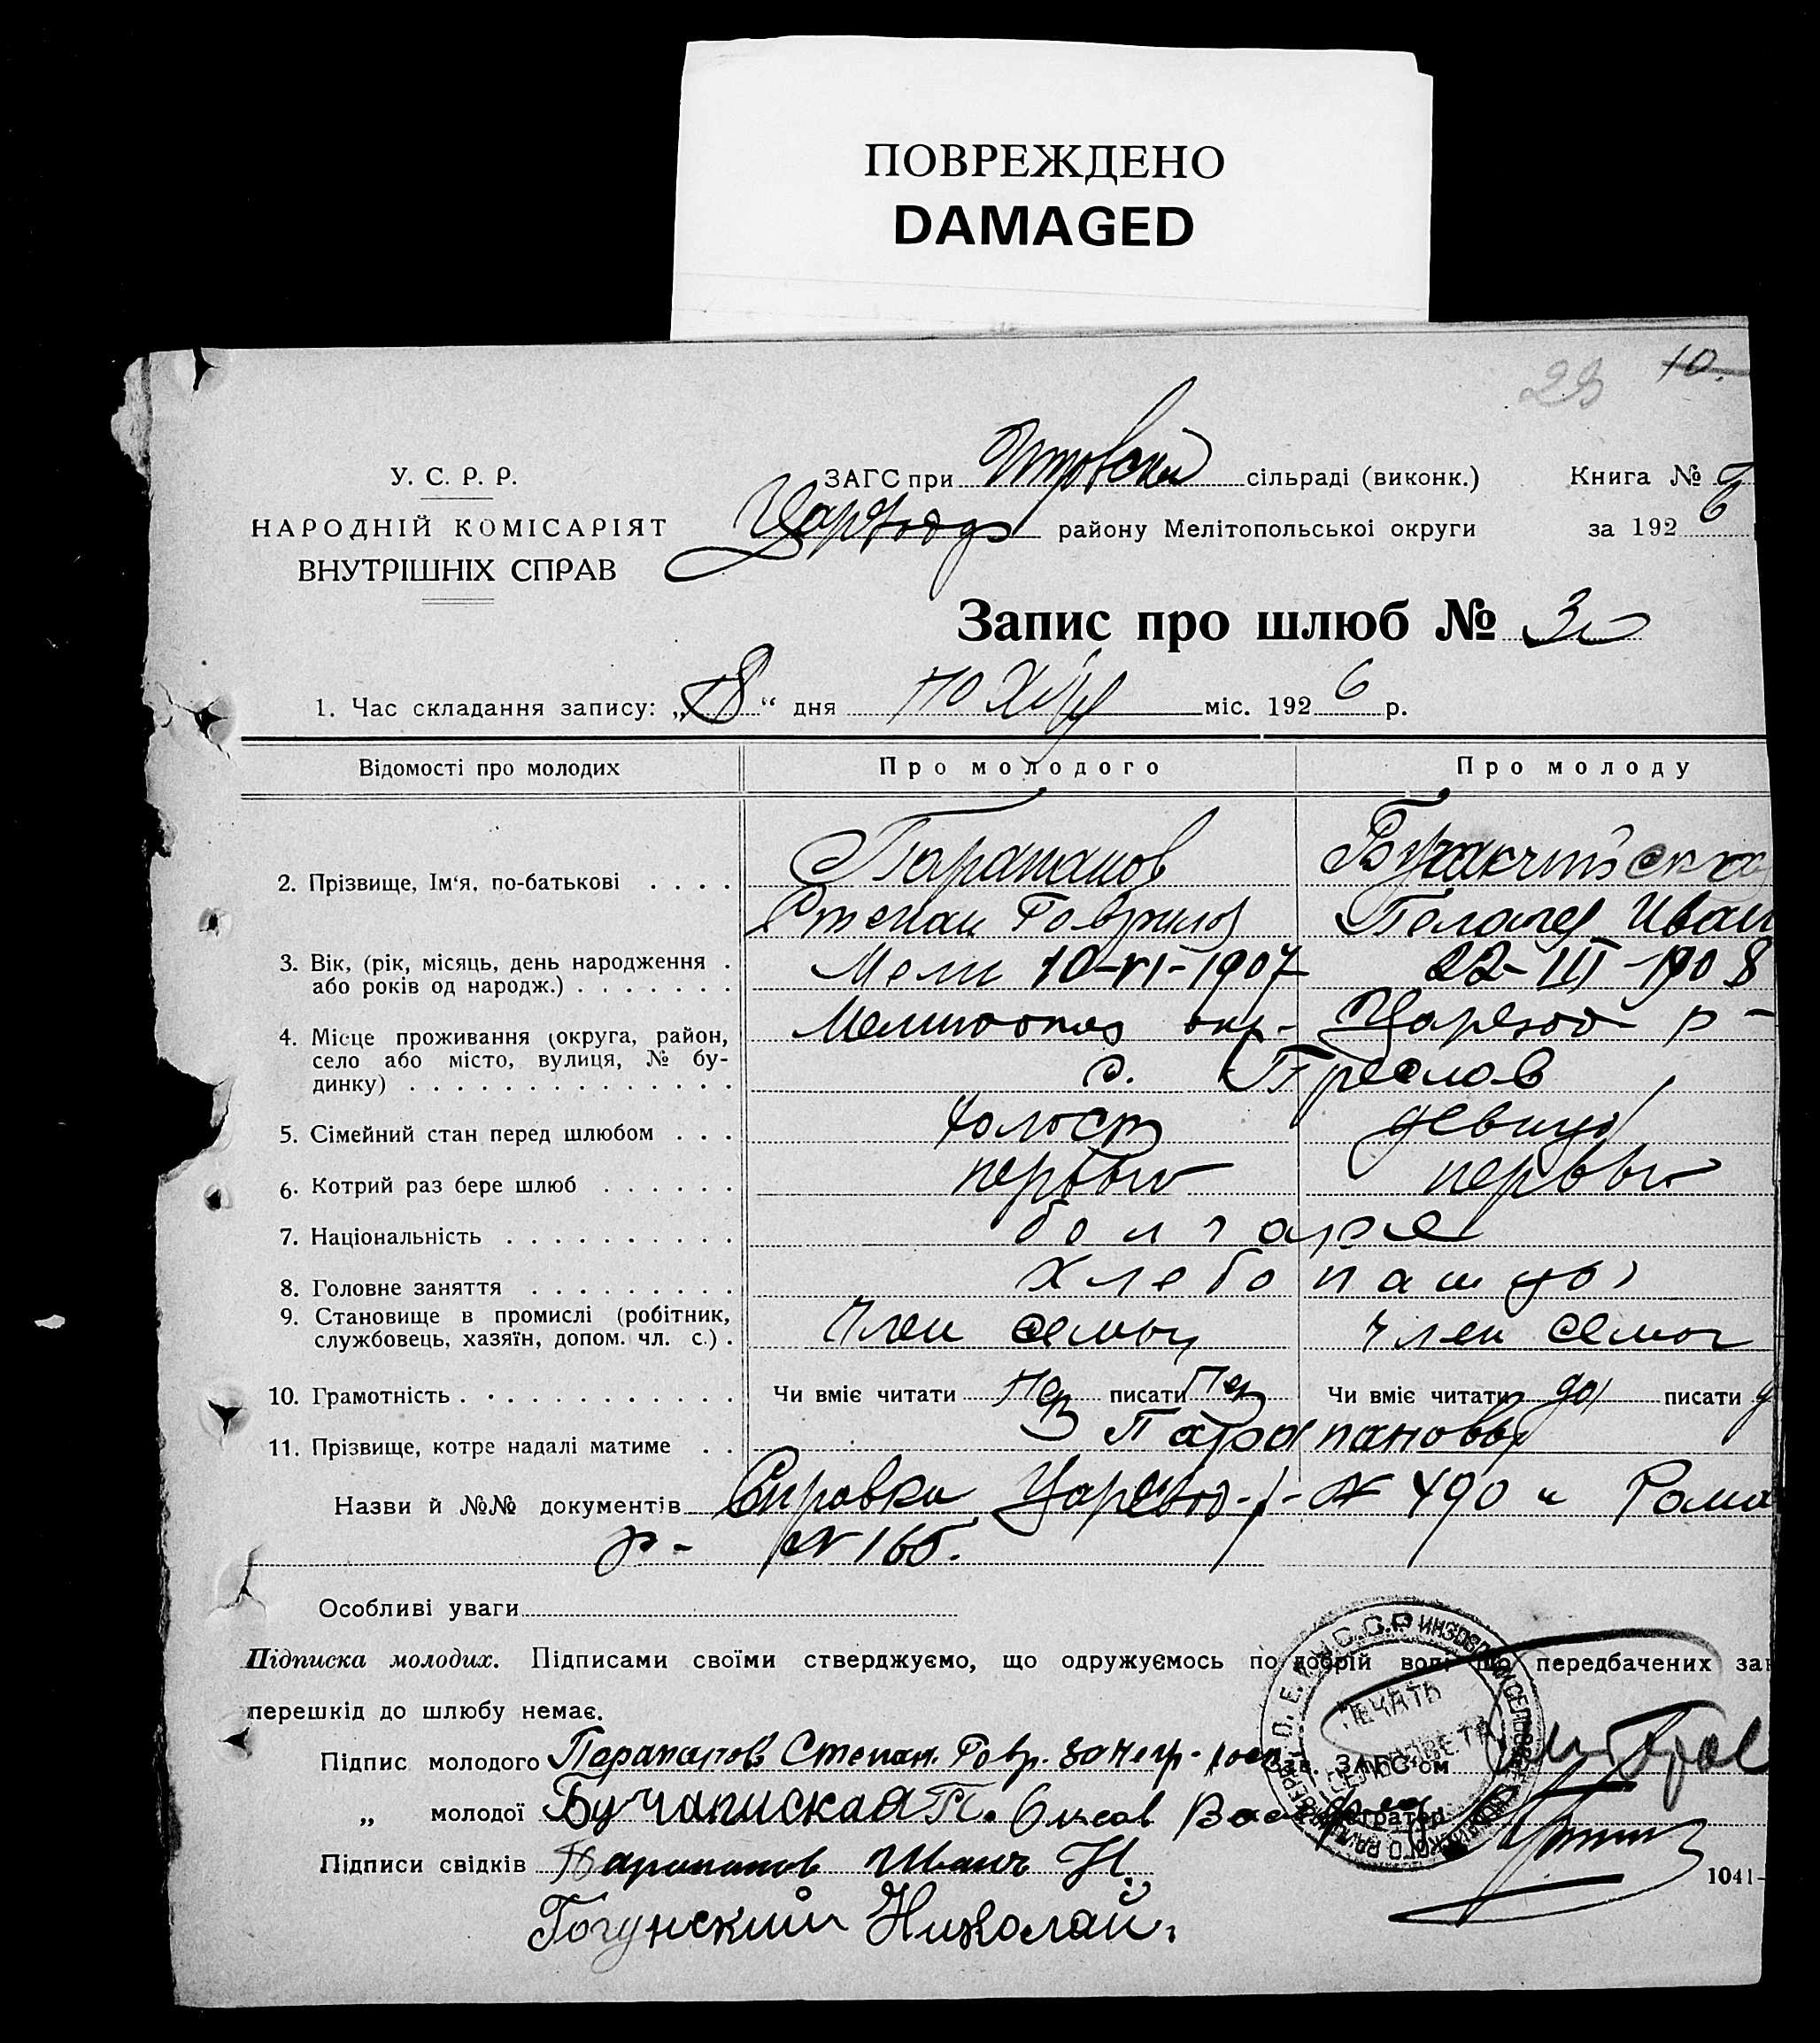 ПОВРЕЖДЕНО
DAMAGED
10.
У. С. Р. Р.
НАРОДНІЙ КОМІСАРІЯТ
ВНУТРІШНІХ СПРАВ
ЗАГС при сільраді (виконк.) Книга №
району Мелітопольської округи за 192 6
Запис про шлюб №
1. Час складання запису: „ “ дня міс. 192 6 р.
Відомості про молодих Про молодого Про молоду
2. Прізвище, Ім‘я, по-батькові . . . . Парапанов
Степан Гаврилов Пелагея Иван
3. Вік, (рік, місяць, день народження . 10-VI-1907 22-III-1908
або років од народж.) . . . . . . .
4. Місце проживання (округа, район, окр- р-
село або місто, вулиця, № бу- с. Преслав
динку) . . . . . . . . . . . . . .
5. Сімейний стан перед шлюбом . . . холост девица
6. Котрий раз бере шлюб . . . . . . первый первый
7. Національність . . . . . . . . . . болгаре
8. Головне заняття . . . . . . . . . хлебопашцы
9. Становище в промислі (робітник, Член семьи член семьи
службовець, хазяїн, допом. чл. с.) .
10. Грамотність . . . . . . . . . . . . Чи вміє читати писати Чи вміє читати да писати
11. Прізвище, котре надалі матиме . . Парапановы
Назви й №№ документів Справка № 490 и Рома
р- № 165.
Особливі уваги
Підписка молодих. Підписами своїми стверджуємо, що одружуємось по добрій волі що передбачених зак
перешкід до шлюбу немає.
Підпис молодого Парапанов Степан Гавр. Зав. ЗАГС‘ом
„ молодої Бучапиская П.
Підписи свідків Парапанов Иван Н.
1041-
Гогунский Николай.